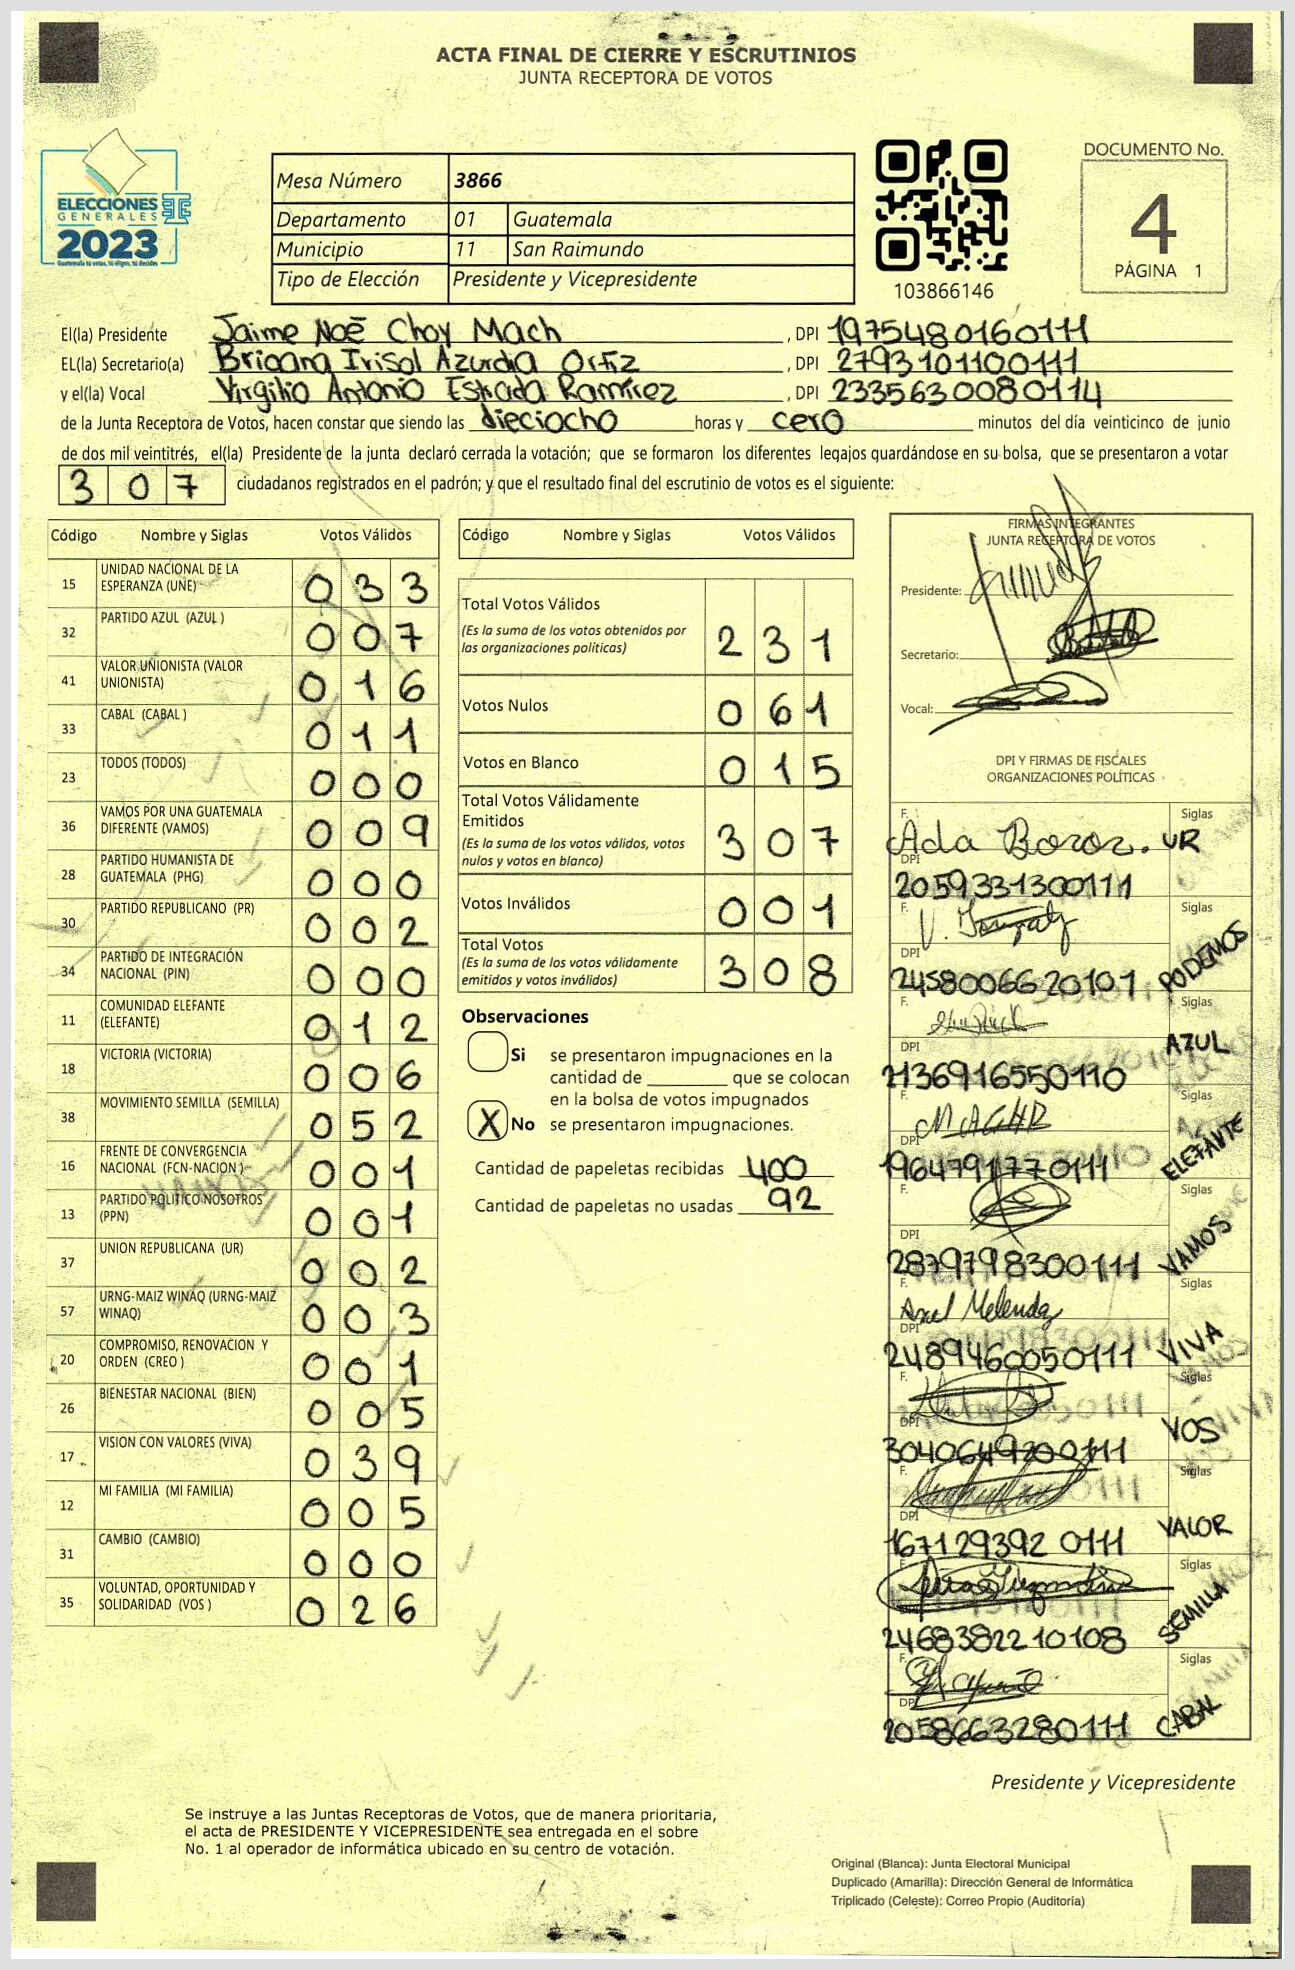 ACTA FINAL DE CIERRE Y ESCRUTINIOS
JUNTA RECEPTORA DE VOTOS
ELECCIONES
GENERALES
2023
Guatemala tú votas, tú eliges, tú decides
Mesa Número 3866
Departamento 01 Guatemala
Municipio 11 San Raimundo
Tipo de Elección Presidente y Vicepresidente
103866146
DOCUMENTO No.
4
PÁGINA 1
El(la) Presidente Jaime Noé Choy Mach , DPI 1975480160111
EL(la) Secretario(a) Brioana Irisol Azurdia Ortiz , DPI 2793101100111
y el(la) Vocal Virgilio Antonio Estrada Ramírez , DPI 2335630080114
de la Junta Receptora de Votos, hacen constar que siendo las dieciocho horas y cero minutos del día veinticinco de junio
de dos mil veintitrés, el(la) Presidente de la junta declaró cerrada la votación; que se formaron los diferentes legajos quardándose en su bolsa, que se presentaron a votar
307 ciudadanos registrados en el padrón; y que el resultado final del escrutinio de votos es el siguiente:
Código Nombre y Siglas Votos Válidos
15 UNIDAD NACIONAL DE LA ESPERANZA (UNE) 033
32 PARTIDO AZUL (AZUL ) 007
41 VALOR UNIONISTA (VALOR UNIONISTA) 016
33 CABAL (CABAL ) 011
23 TODOS (TODOS) 000
36 VAMOS POR UNA GUATEMALA DIFERENTE (VAMOS) 009
28 PARTIDO HUMANISTA DE GUATEMALA (PHG) 000
30 PARTIDO REPUBLICANO (PR) 002
34 PARTIDO DE INTEGRACIÓN NACIONAL (PIN) 000
11 COMUNIDAD ELEFANTE (ELEFANTE) 012
18 VICTORIA (VICTORIA) 006
38 MOVIMIENTO SEMILLA (SEMILLA) 052
16 FRENTE DE CONVERGENCIA NACIONAL (FCN-NACION ) 001
13 PARTIDO POLITICO NOSOTROS (PPN) 001
37 UNION REPUBLICANA (UR) 002
57 URNG-MAIZ WINAQ (URNG-MAIZ WINAQ) 003
20 COMPROMISO, RENOVACION Y ORDEN (CREO ) 001
26 BIENESTAR NACIONAL (BIEN) 005
17 VISION CON VALORES (VIVA) 039
12 MI FAMILIA (MI FAMILIA) 005
31 CAMBIO (CAMBIO) 000
35 VOLUNTAD, OPORTUNIDAD Y SOLIDARIDAD (VOS ) 026
Código Nombre y Siglas Votos Válidos
Total Votos Válidos 231
(Es la suma de los votos obtenidos por
las organizaciones políticas)
Votos Nulos 061
Votos en Blanco 015
Total Votos Válidamente
Emitidos 307
(Es la suma de los votos válidos, votos
nulos y votos en blanco)
Votos Inválidos 001
Total Votos 308
(Es la suma de los votos válidamente
emitidos y votos inválidos)
Observaciones
Si se presentaron impugnaciones en la
cantidad de ________ que se colocan
en la bolsa de votos impugnados
X No se presentaron impugnaciones.
Cantidad de papeletas recibidas 400
Cantidad de papeletas no usadas 92
FIRMAS INTEGRANTES
JUNTA RECEPTORA DE VOTOS
Presidente:
Secretario:
Vocal:
DPI Y FIRMAS DE FISCALES
ORGANIZACIONES POLÍTICAS
F. Siglas
Ada Boror. UR
DPI
2059331300111
F. Siglas
DPI PODEMOS
2458006620101
F. Siglas
DPI AZUL
2136916550110
F. Siglas
DPI ELEFANTE
1964791770111
F. Siglas
DPI VAMOS
2879798300111
F. Siglas
Axel Melendez
DPI VIVA
2489460050111
F. Siglas
DPI VOS
3040649200111
F. Siglas
DPI VALOR
1671293920111
F. Siglas
SEMILLA
2468382210108
F. Siglas
DPI CABAL
2058663280111
Presidente y Vicepresidente
Se instruye a las Juntas Receptoras de Votos, que de manera prioritaria,
el acta de PRESIDENTE Y VICEPRESIDENTE sea entregada en el sobre
No. 1 al operador de informática ubicado en su centro de votación.
Original (Blanca): Junta Electoral Municipal
Duplicado (Amarilla): Dirección General de Informática
Triplicado (Celeste): Correo Propio (Auditoría)